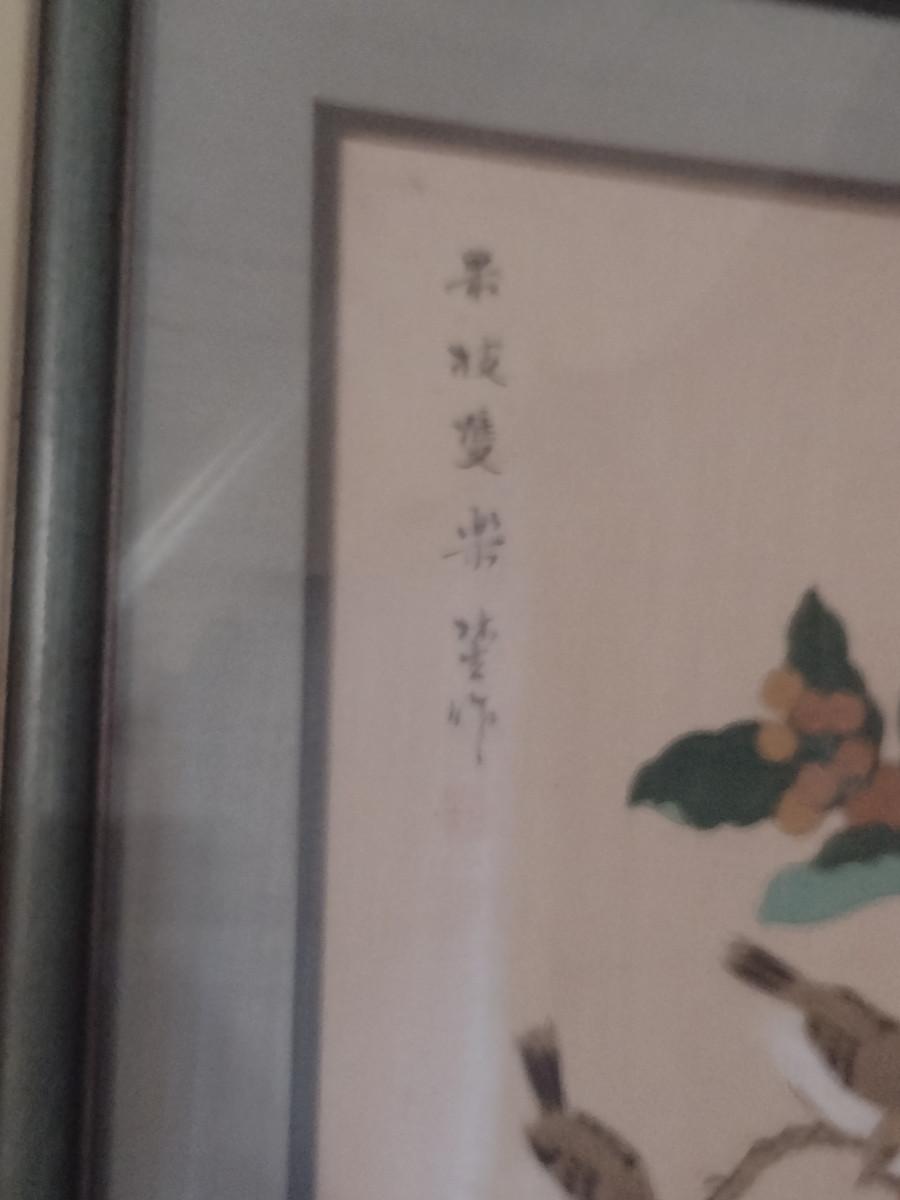 果枝雙樂 作